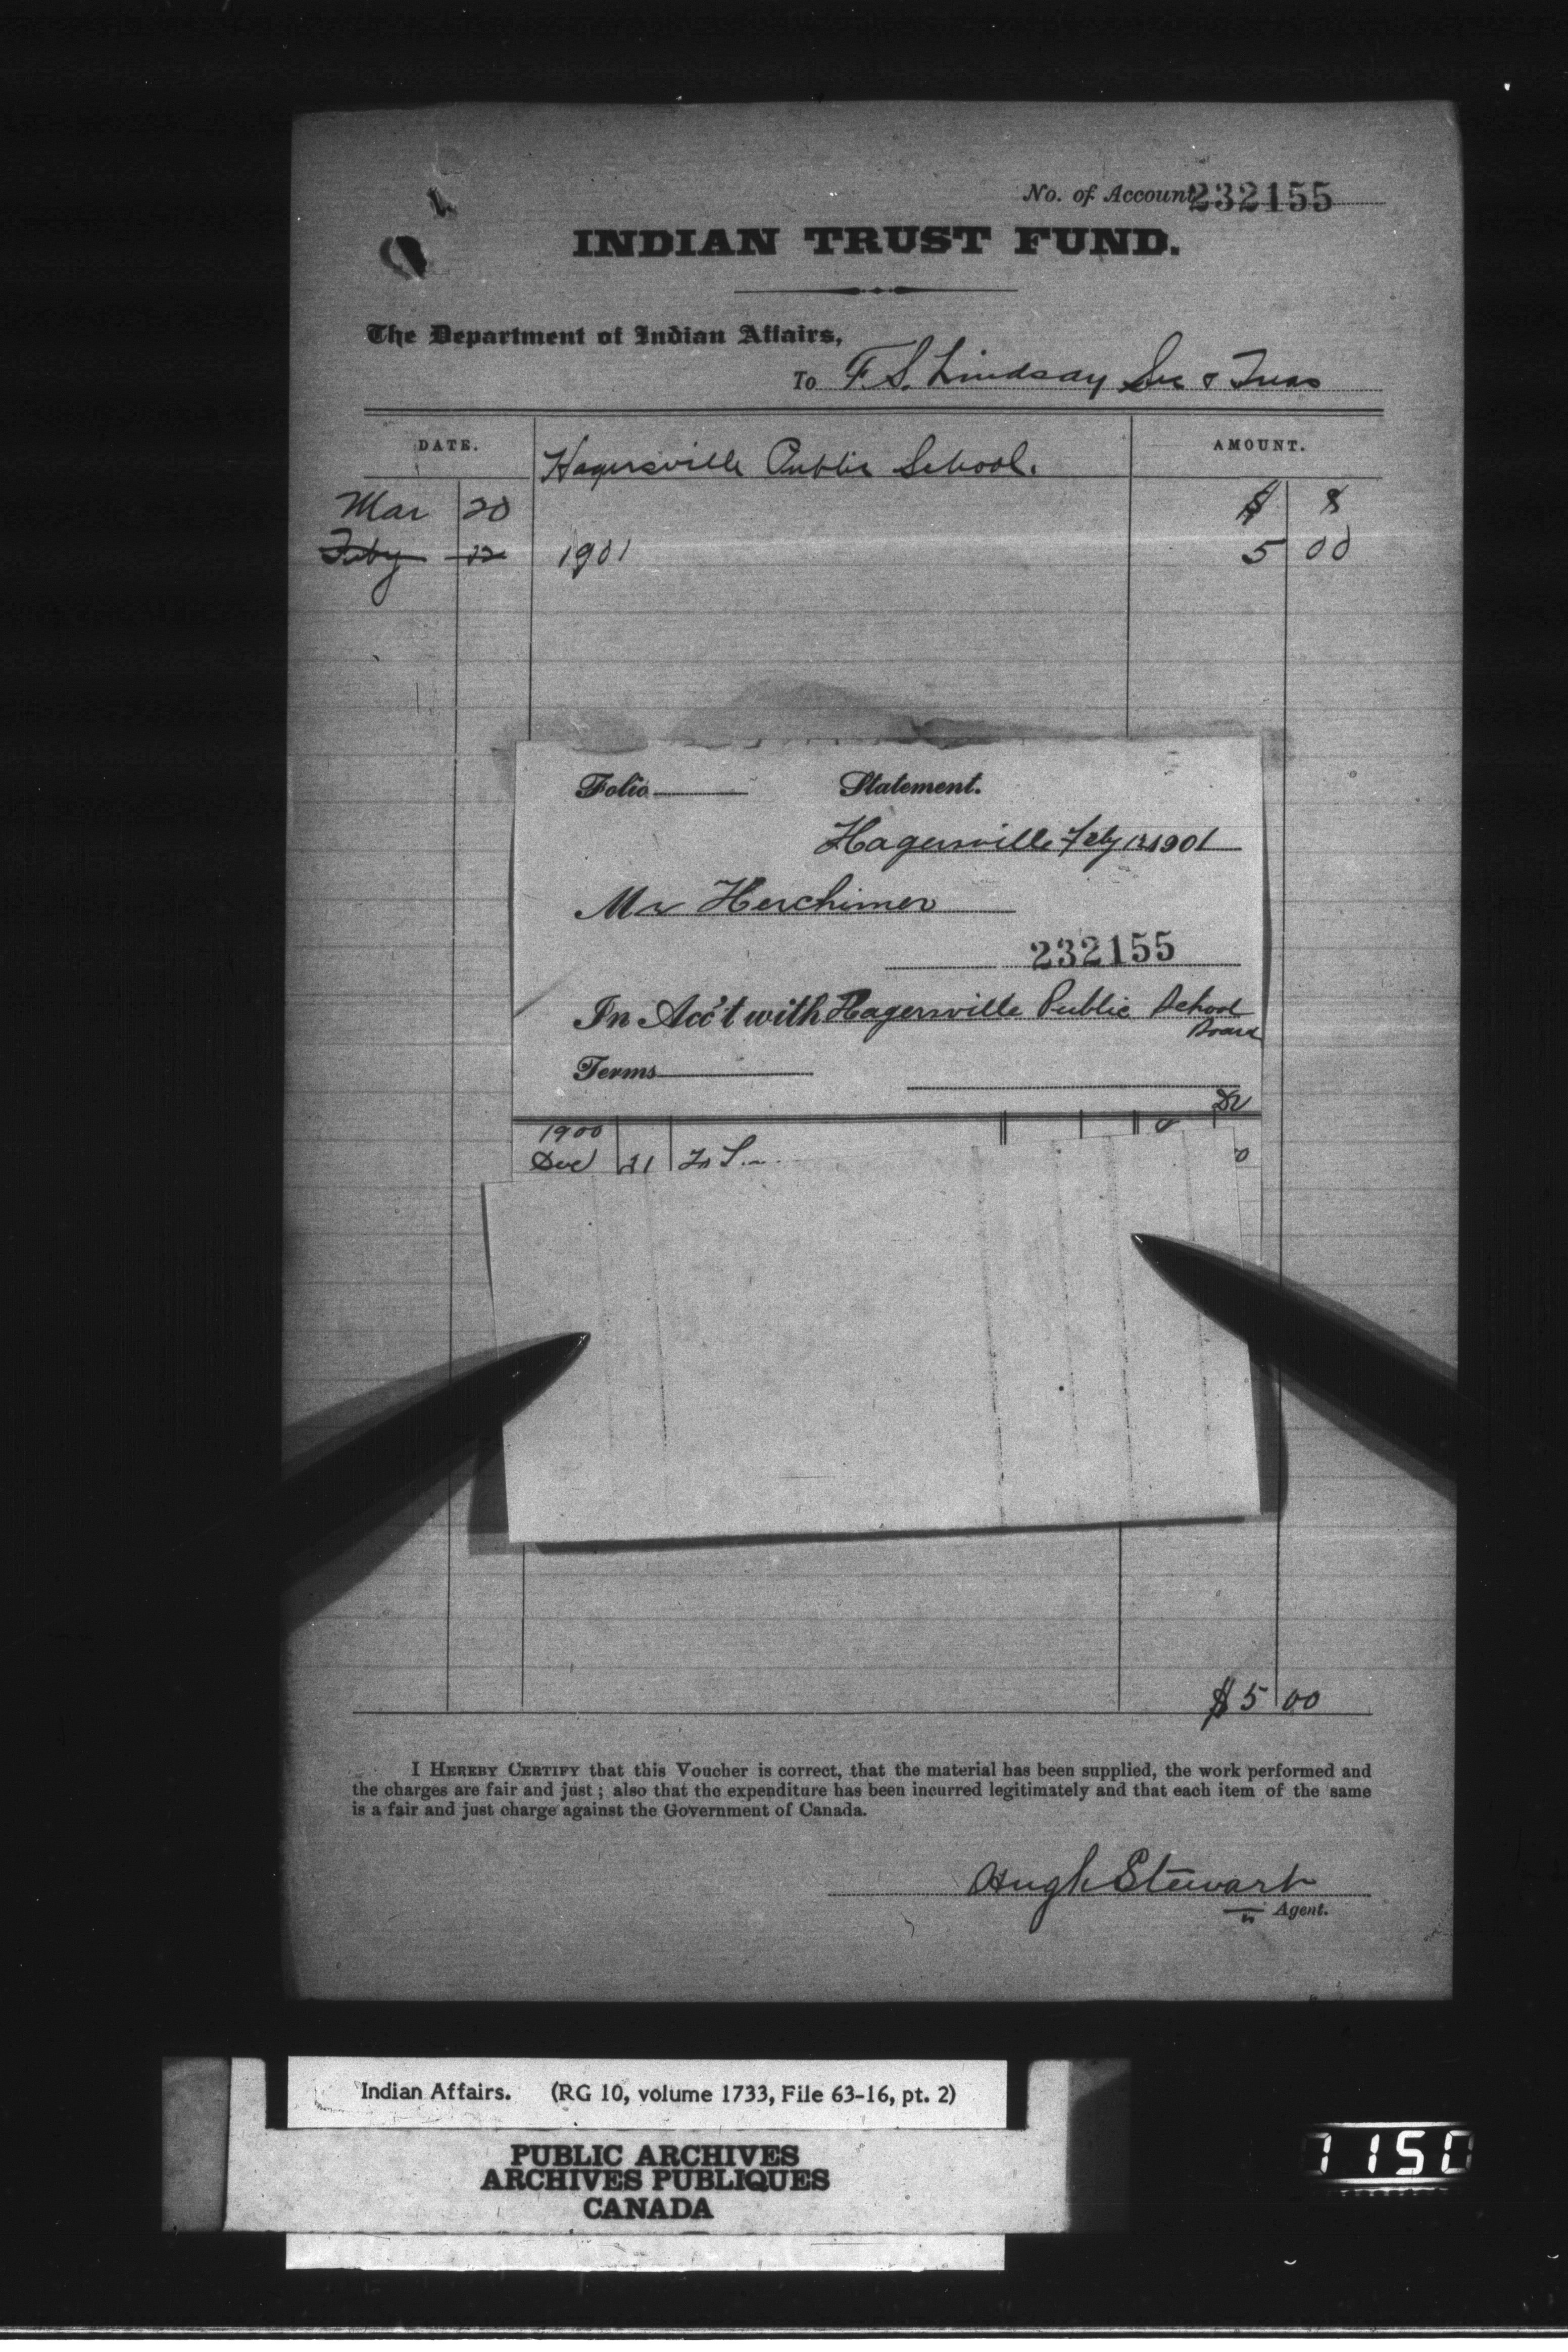 No. of Account 232155
INDIAN TRUST FUND.
The Department of Indian Affairs,
To F. S. Lindsay Sec & Treas
DATE. AMOUNT.
Hagersville Public School.
Mar 20 $ ¢
Feby 12 1901 5 00
Folio Statement.
Hagersville Feby 12 1901
Mr Herchimer
232155
In Acc't with Hagersville Public School
Board
Terms
Dr
1900
Dec 21 To
$ 5 00
I HEREBY CERTIFY that this Voucher is correct, that the material has been supplied, the work performed and
the charges are fair and just; also that the expenditure has been incurred legitimately and that each item of the same
is a fair and just charge against the Government of Canada.
Hugh Stewart
Agent.
Indian Affairs. (RG 10, volume 1733, File 63-16, pt. 2)
PUBLIC ARCHIVES
ARCHIVES PUBLIQUES
CANADA
1150